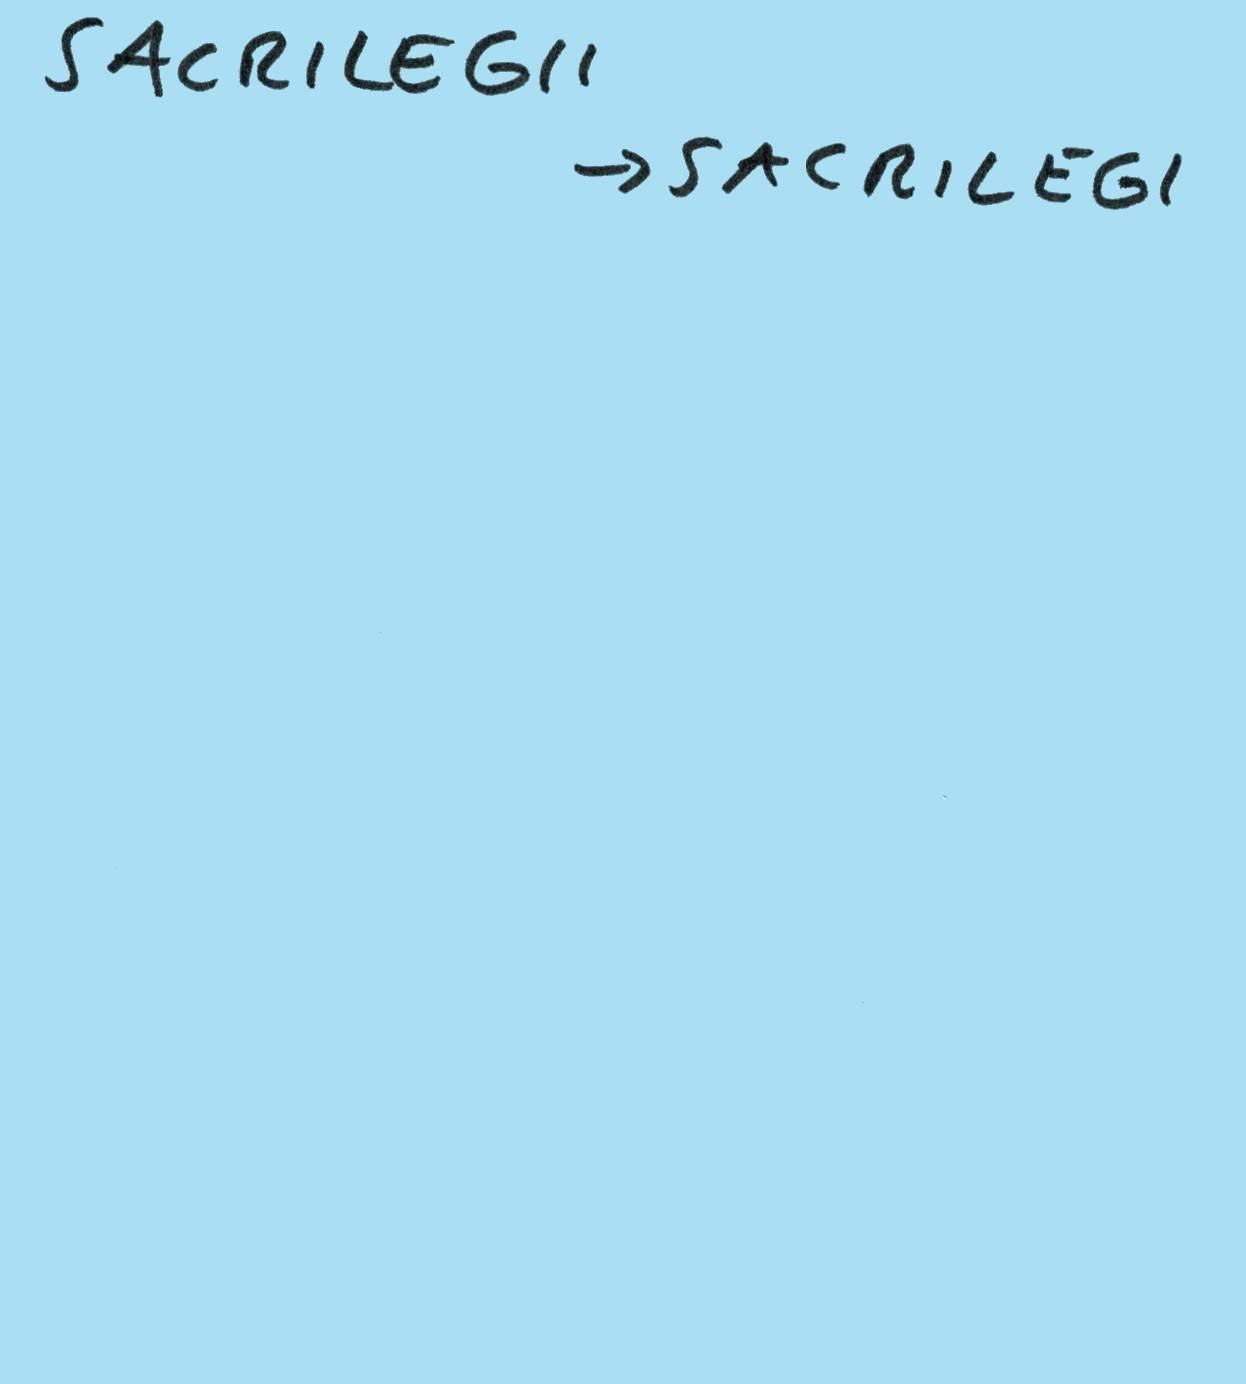 SACRILEGII
→ SACRILEGI